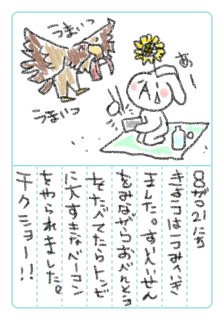 うまいっ
うまいっ
あー
8がつ21にち
きょうはうみへいき
ました。すいへいせん
をみながらおべんとう
をたべてたらトンビ
に大すきなベーコン
をやられました。
チクショー!!